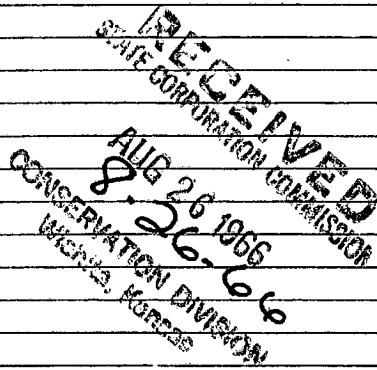 RECEIVED
STATE CORPORATION COMMISSION
AUG 26 1966
8-26-66
CONSERVATION DIVISION
Wichita, Kansas